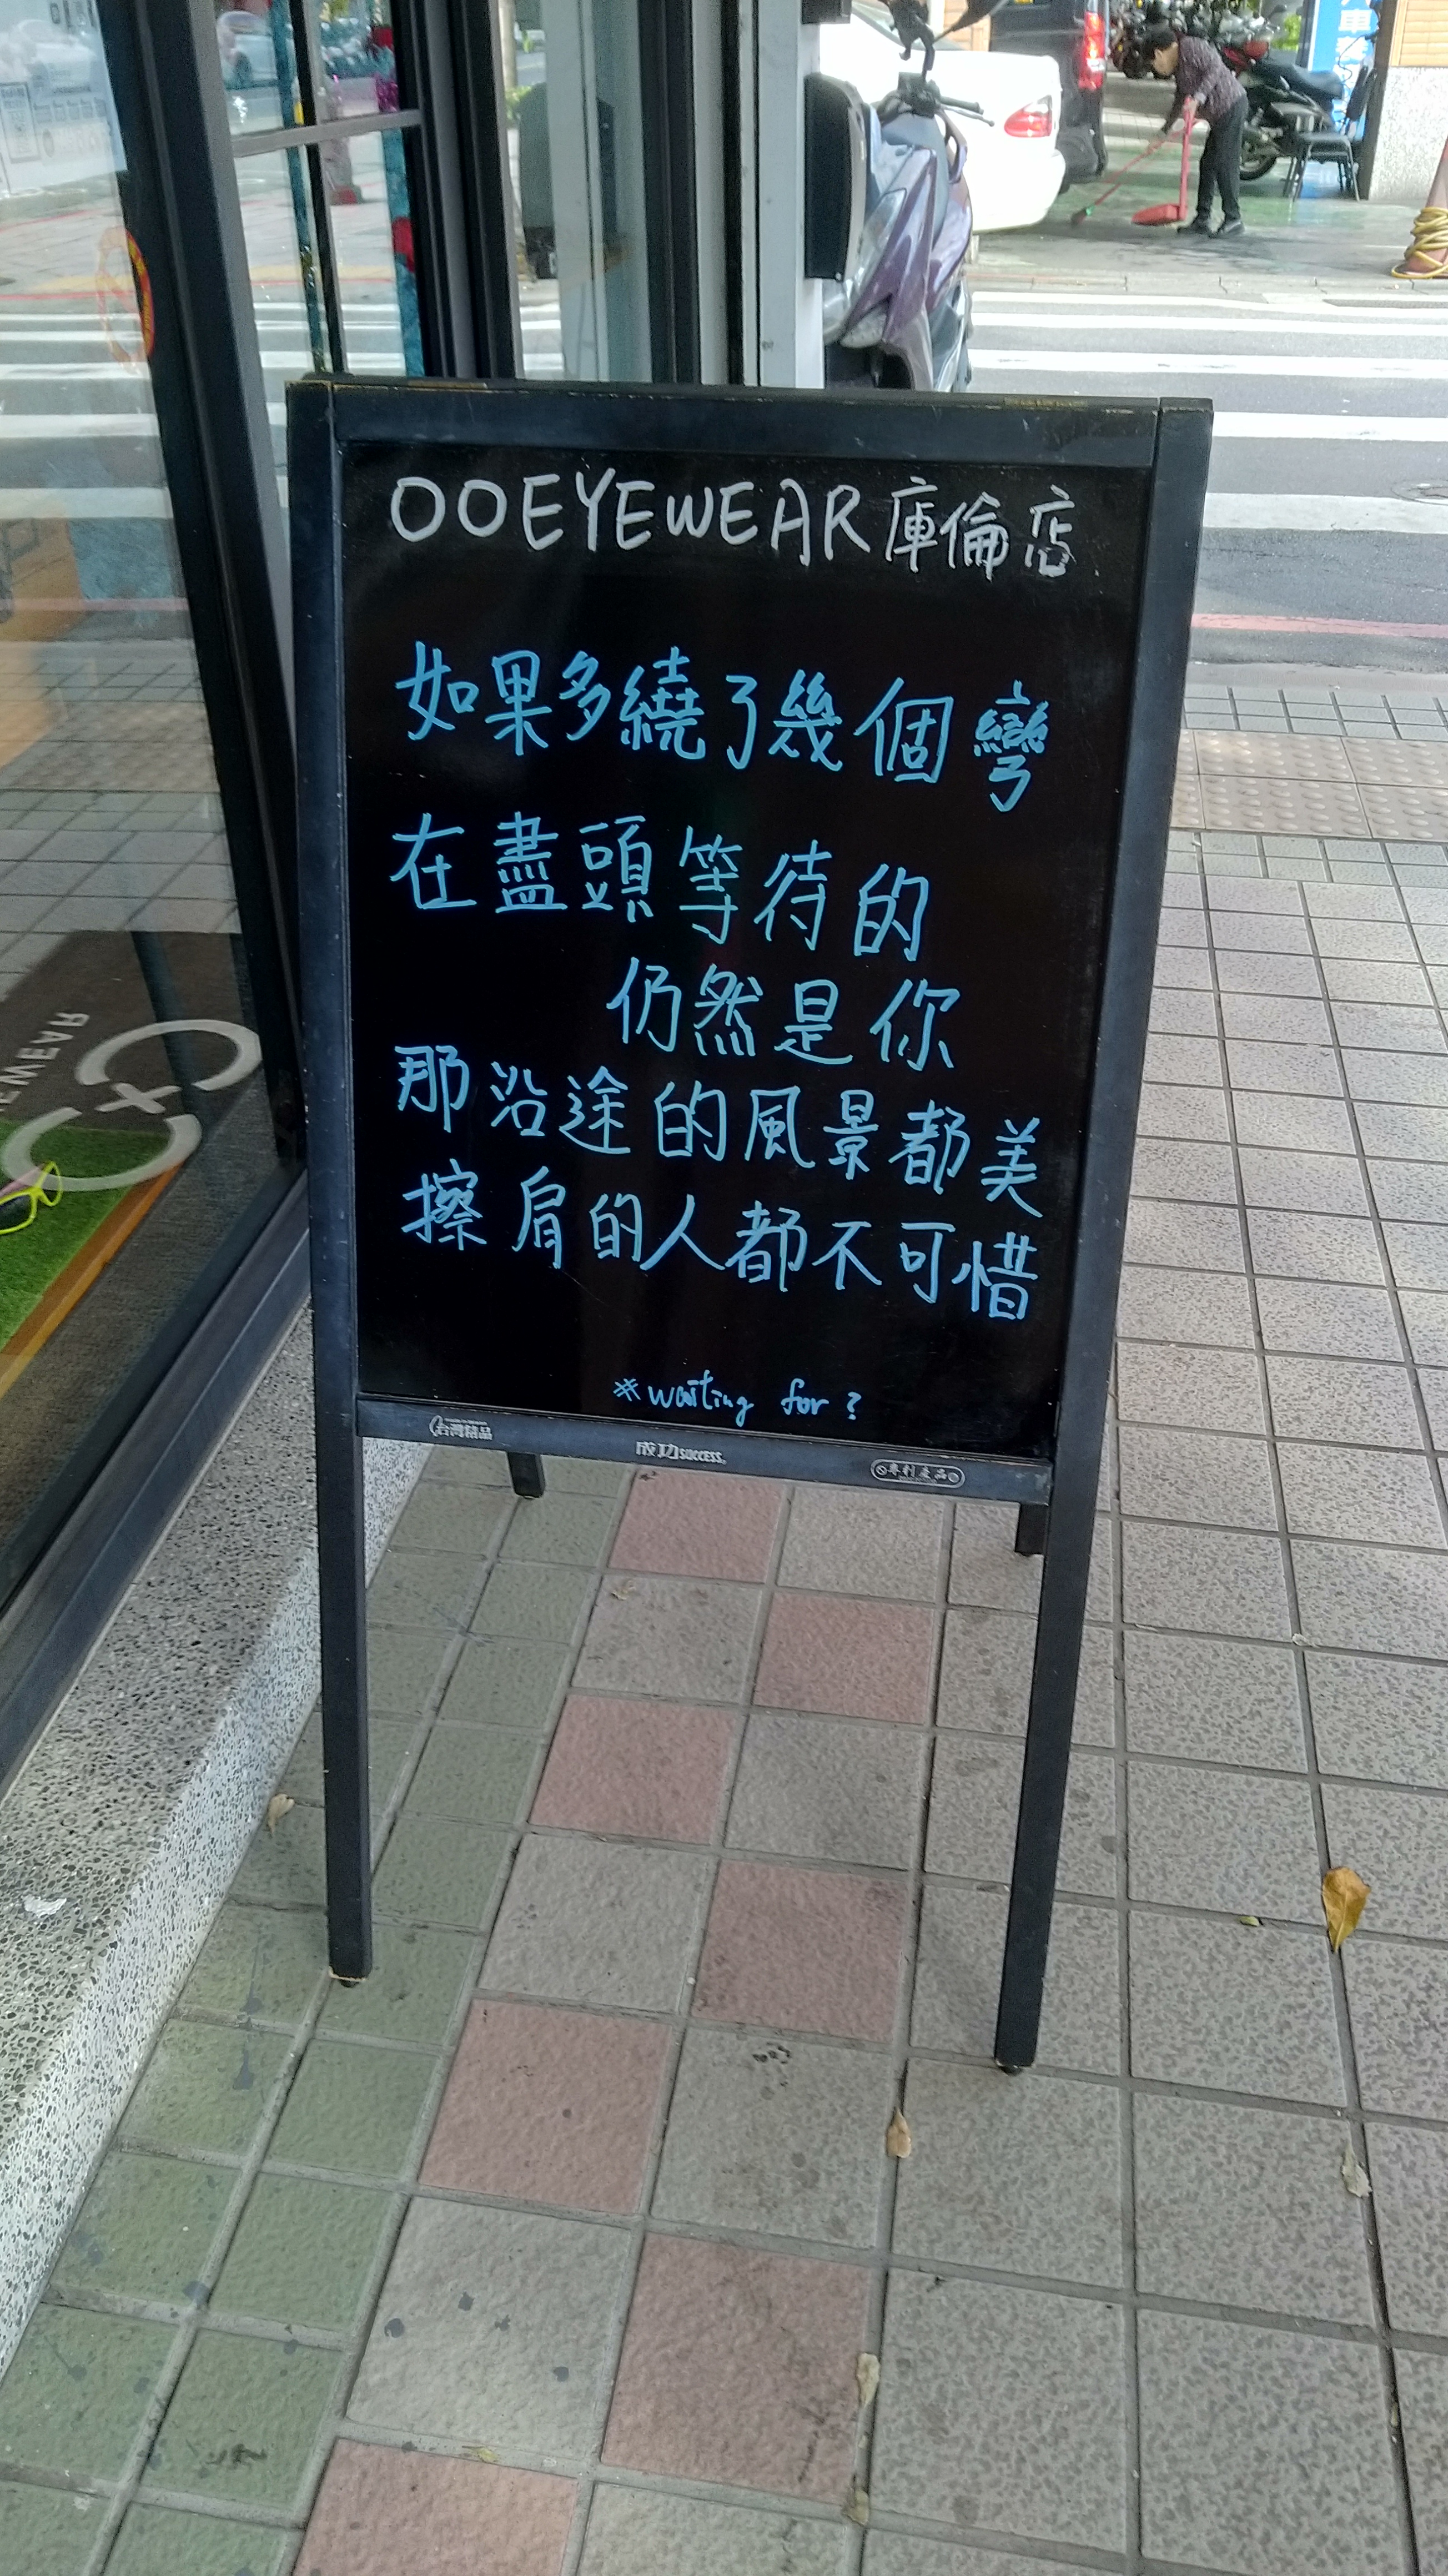 OOEYEWEAR庫倫店
如果多繞了幾個彎
在盡頭等待的
仍然是你
那沿途的風景都美
擦肩的人都不可惜
#waiting for?
台灣精品
成功SUCCESS
專利產品
WEAR